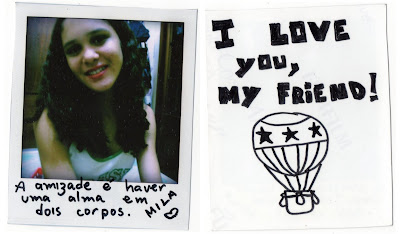 A amizade e haver
uma alma em
dois corpos.
MILA
I LOVE
you,
MY FRiEND!